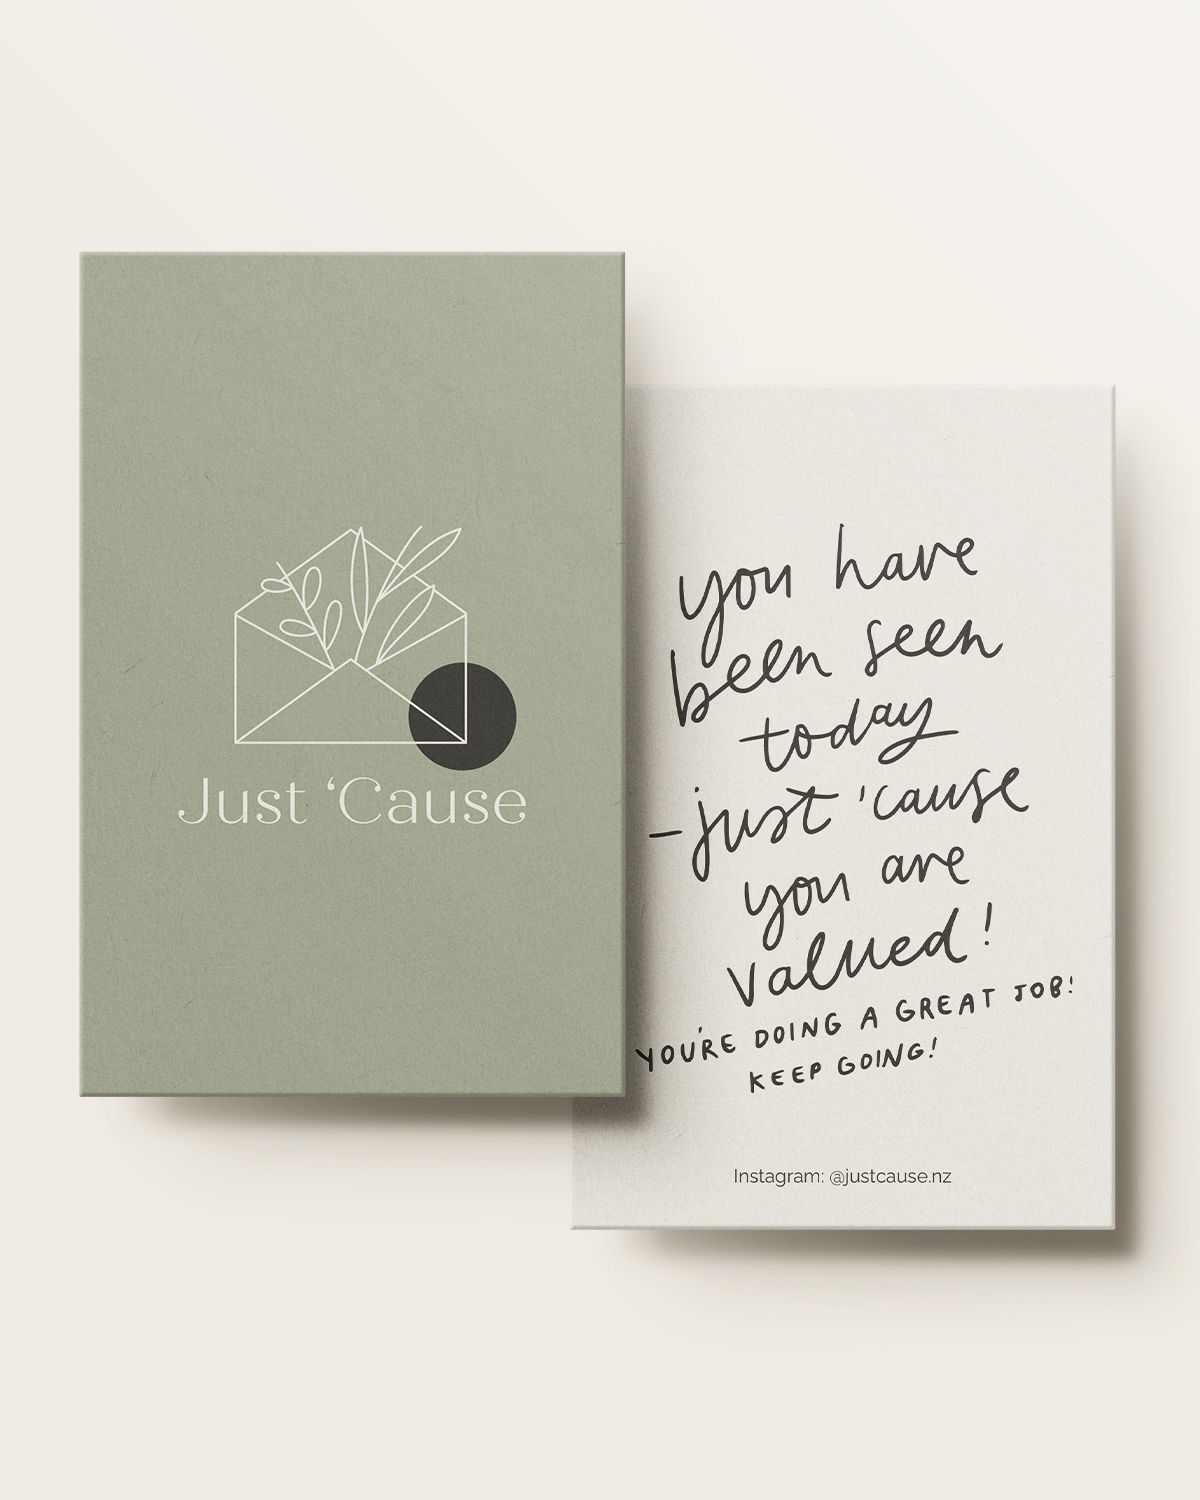 Just ‘Cause
you have
been seen
today
-just 'cause
you are
valued!
YOU'RE DOING A GREAT JOB!
KEEP GOING!
Instagram: @justcause.nz